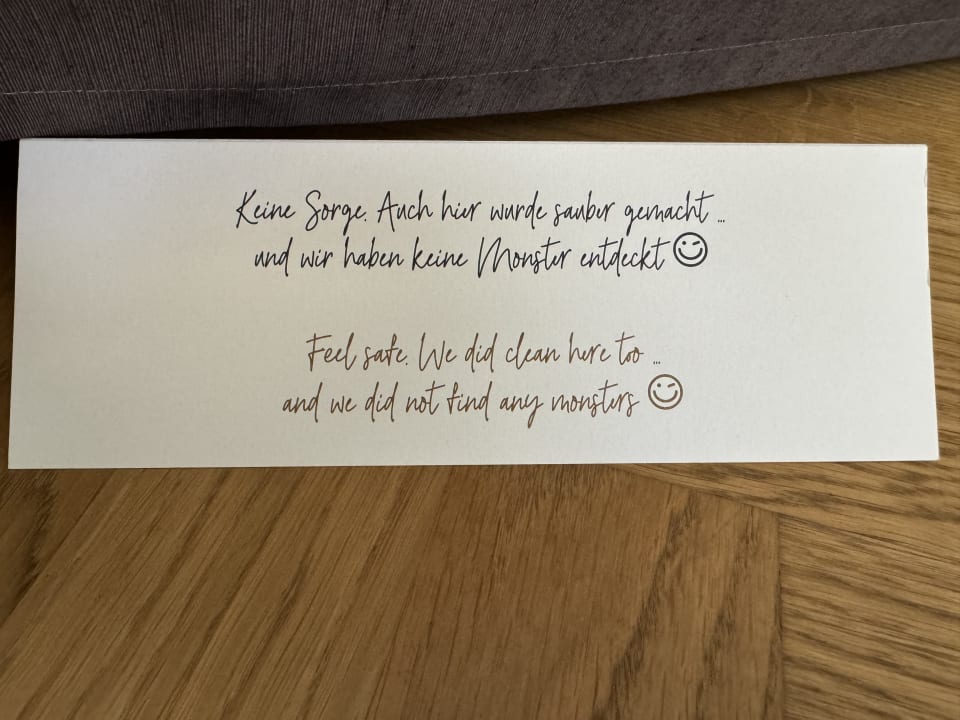 Keine Sorge. Auch hier wurde sauber gemacht ...
und wir haben keine Monster entdeckt 😉
Feel safe. We did clean here too ...
and we did not find any monsters 😉